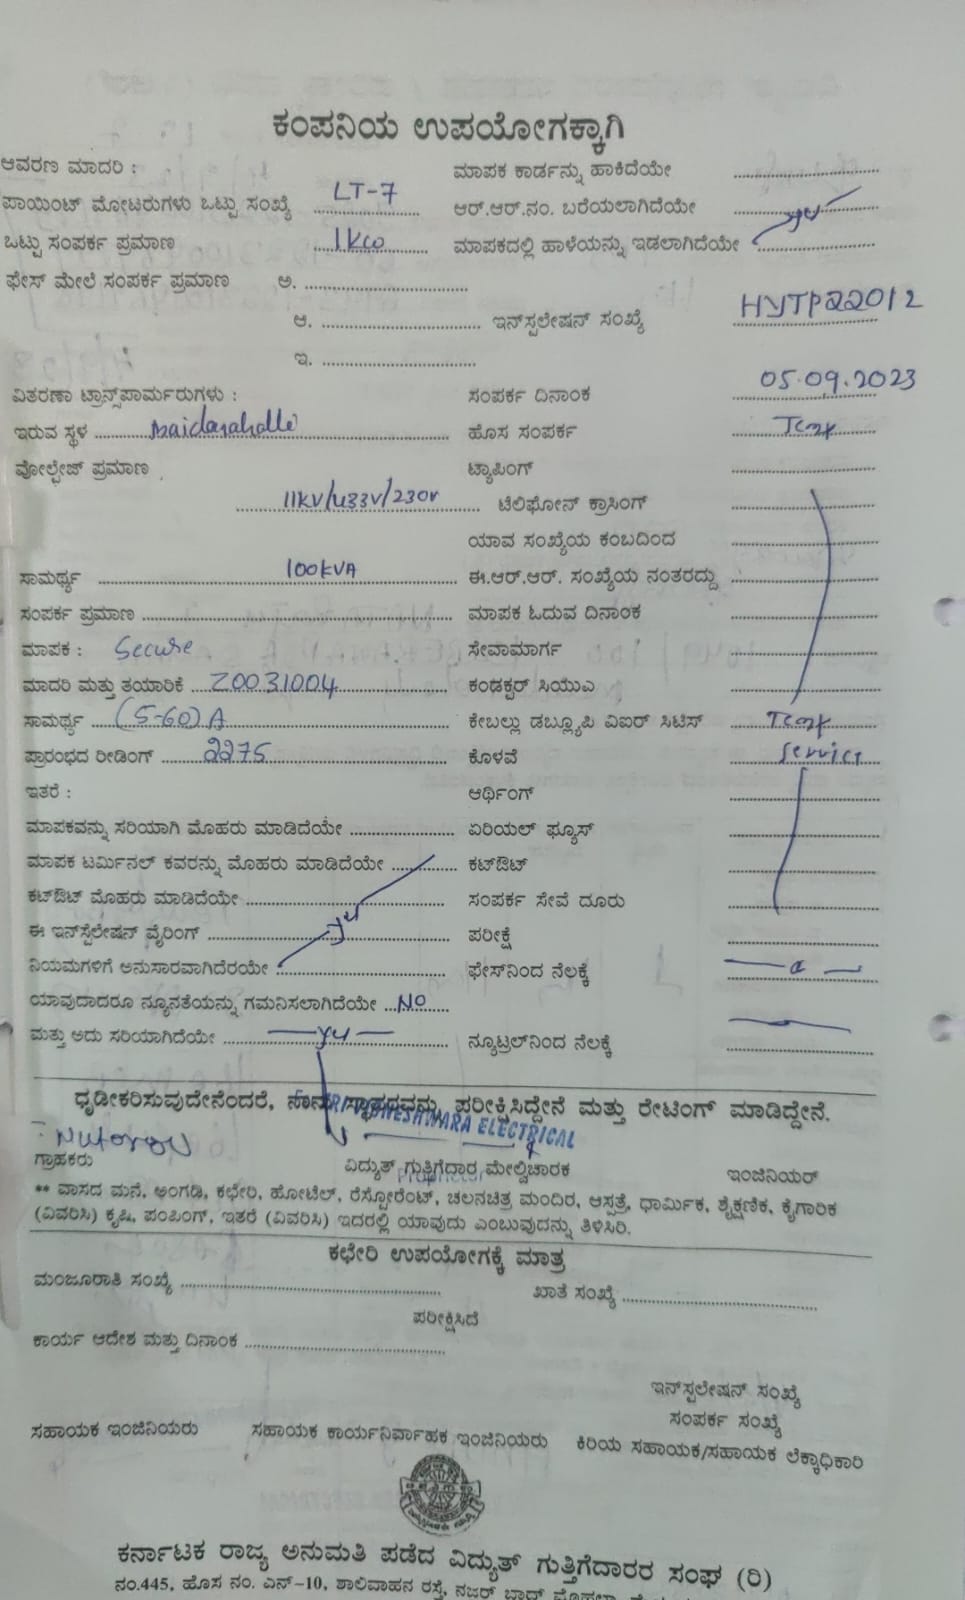 ಕಂಪನಿಯ ಉಪಯೋಗಕ್ಕಾಗಿ
ಆವರಣ ಮಾದರಿ : ಮಾಪಕ ಕಾರ್ಡನ್ನು ಹಾಕಿದೆಯೇ
ಪಾಯಿಂಟ್ ಮೋಟರುಗಳು ಒಟ್ಟು ಸಂಖ್ಯೆ LT-7 ಆರ್.ಆರ್.ನಂ. ಬರೆಯಲಾಗಿದೆಯೇ
ಒಟ್ಟು ಸಂಪರ್ಕ ಪ್ರಮಾಣ 1KW ಮಾಪಕದಲ್ಲಿ ಹಾಳೆಯನ್ನು ಇಡಲಾಗಿದೆಯೇ
ಫೇಸ್ ಮೇಲೆ ಸಂಪರ್ಕ ಪ್ರಮಾಣ ಅ.
ಆ. ಇನ್‌ಸ್ಪಲೇಷನ್ ಸಂಖ್ಯೆ HYTP22012
ಇ.
ವಿತರಣಾ ಟ್ರಾನ್ಸ್‌ಪಾರ್ಮರುಗಳು : ಸಂಪರ್ಕ ದಿನಾಂಕ 05.09.2023
ಇರುವ ಸ್ಥಳ ಹೊಸ ಸಂಪರ್ಕ
ವೋಲ್ಟೇಜ್ ಪ್ರಮಾಣ ಟ್ಯಾಪಿಂಗ್
11KV/433V/230V ಟೆಲಿಫೋನ್ ಕ್ರಾಸಿಂಗ್
ಯಾವ ಸಂಖ್ಯೆಯ ಕಂಬದಿಂದ
ಸಾಮರ್ಥ್ಯ 100KVA ಈ.ಆರ್.ಆರ್. ಸಂಖ್ಯೆಯ ನಂತರದ್ದು
ಸಂಪರ್ಕ ಪ್ರಮಾಣ ಮಾಪಕ ಓದುವ ದಿನಾಂಕ
ಮಾಪಕ : Secure ಸೇವಾಮಾರ್ಗ
ಮಾದರಿ ಮತ್ತು ತಯಾರಿಕೆ Z0031004 ಕಂಡಕ್ಟರ್ ಸಿಯುಎ
ಸಾಮರ್ಥ್ಯ (5-60)A ಕೇಬಲ್ಲು ಡಬ್ಲ್ಯೂಪಿ ವಿಐರ್ ಸಿಟಿಸ್
ಪ್ರಾರಂಭದ ರೀಡಿಂಗ್ 2275 ಕೊಳವೆ Service
ಇತರೆ : ಆರ್ಥಿಂಗ್
ಮಾಪಕವನ್ನು ಸರಿಯಾಗಿ ಮೊಹರು ಮಾಡಿದೆಯೇ ಏರಿಯಲ್ ಫ್ಯೂಸ್
ಮಾಪಕ ಟರ್ಮಿನಲ್ ಕವರನ್ನು ಮೊಹರು ಮಾಡಿದೆಯೇ ಕಟ್‌ಔಟ್
ಕಟ್‌ಔಟ್ ಮೊಹರು ಮಾಡಿದೆಯೇ ಸಂಪರ್ಕ ಸೇವೆ ದೂರು
ಈ ಇನ್‌ಸ್ಪೆಲೇಷನ್ ವೈರಿಂಗ್ ಪರೀಕ್ಷೆ
ನಿಯಮಗಳಿಗೆ ಅನುಸಾರವಾಗಿದೆರಯೇ ಫೇಸ್‌ನಿಂದ ನೆಲಕ್ಕೆ
ಯಾವುದಾದರೂ ನ್ಯೂನತೆಯನ್ನು ಗಮನಿಸಲಾಗಿದೆಯೇ NO
ಮತ್ತು ಅದು ಸರಿಯಾಗಿದೆಯೇ ನ್ಯೂಟ್ರಲ್‌ನಿಂದ ನೆಲಕ್ಕೆ
ಧೃಡೀಕರಿಸುವುದೇನೆಂದರೆ, ನಾನು ಸ್ಥಾಪಕವನ್ನು ಪರೀಕ್ಷಿಸಿದ್ದೇನೆ ಮತ್ತು ರೇಟಿಂಗ್ ಮಾಡಿದ್ದೇನೆ.
ELECTRICAL
ಗ್ರಾಹಕರು ವಿದ್ಯುತ್ ಗುತ್ತಿಗೆದಾರ ಮೇಲ್ವಿಚಾರಕ ಇಂಜಿನಿಯರ್
Proprietor
** ವಾಸದ ಮನೆ, ಅಂಗಡಿ, ಕಛೇರಿ, ಹೋಟೆಲ್, ರೆಸ್ಟೋರೆಂಟ್, ಚಲನಚಿತ್ರ ಮಂದಿರ, ಆಸ್ಪತ್ರೆ, ಧಾರ್ಮಿಕ, ಶೈಕ್ಷಣಿಕ, ಕೈಗಾರಿಕ
(ವಿವರಿಸಿ) ಕೃಷಿ, ಪಂಪಿಂಗ್, ಇತರೆ (ವಿವರಿಸಿ) ಇದರಲ್ಲಿ ಯಾವುದು ಎಂಬುವುದನ್ನು ತಿಳಿಸಿರಿ.
ಕಛೇರಿ ಉಪಯೋಗಕ್ಕೆ ಮಾತ್ರ
ಮಂಜೂರಾತಿ ಸಂಖ್ಯೆ ಖಾತೆ ಸಂಖ್ಯೆ
ಪರೀಕ್ಷಿಸಿದೆ
ಕಾರ್ಯ ಆದೇಶ ಮತ್ತು ದಿನಾಂಕ
ಇನ್‌ಸ್ಪಲೇಷನ್ ಸಂಖ್ಯೆ
ಸಂಪರ್ಕ ಸಂಖ್ಯೆ
ಸಹಾಯಕ ಇಂಜಿನಿಯರು ಸಹಾಯಕ ಕಾರ್ಯನಿರ್ವಾಹಕ ಇಂಜಿನಿಯರು ಕಿರಿಯ ಸಹಾಯಕ/ಸಹಾಯಕ ಲೆಕ್ಕಾಧಿಕಾರಿ
ಕರ್ನಾಟಕ ರಾಜ್ಯ ಅನುಮತಿ ಪಡೆದ ವಿದ್ಯುತ್ ಗುತ್ತಿಗೆದಾರರ ಸಂಘ (ರಿ)
ನಂ.445, ಹೊಸ ನಂ. ಎನ್-10, ಶಾಲಿವಾಹನ ರಸ್ತೆ, ನಜರ್ ಬಾದ್ ಮೊಹಲ್ಲಾ,